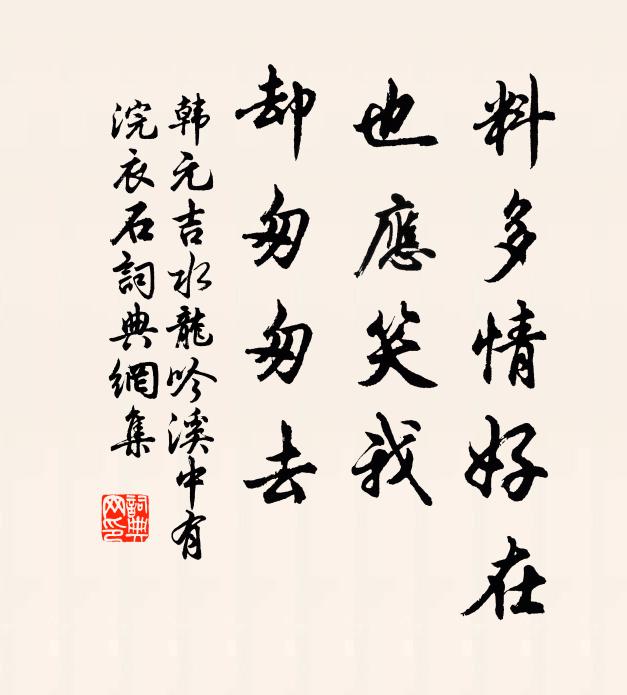 料多情好在
也應笑我
却匆匆去
韩元吉水龍吟溪中有
浣衣石詞典網集
詞典网印